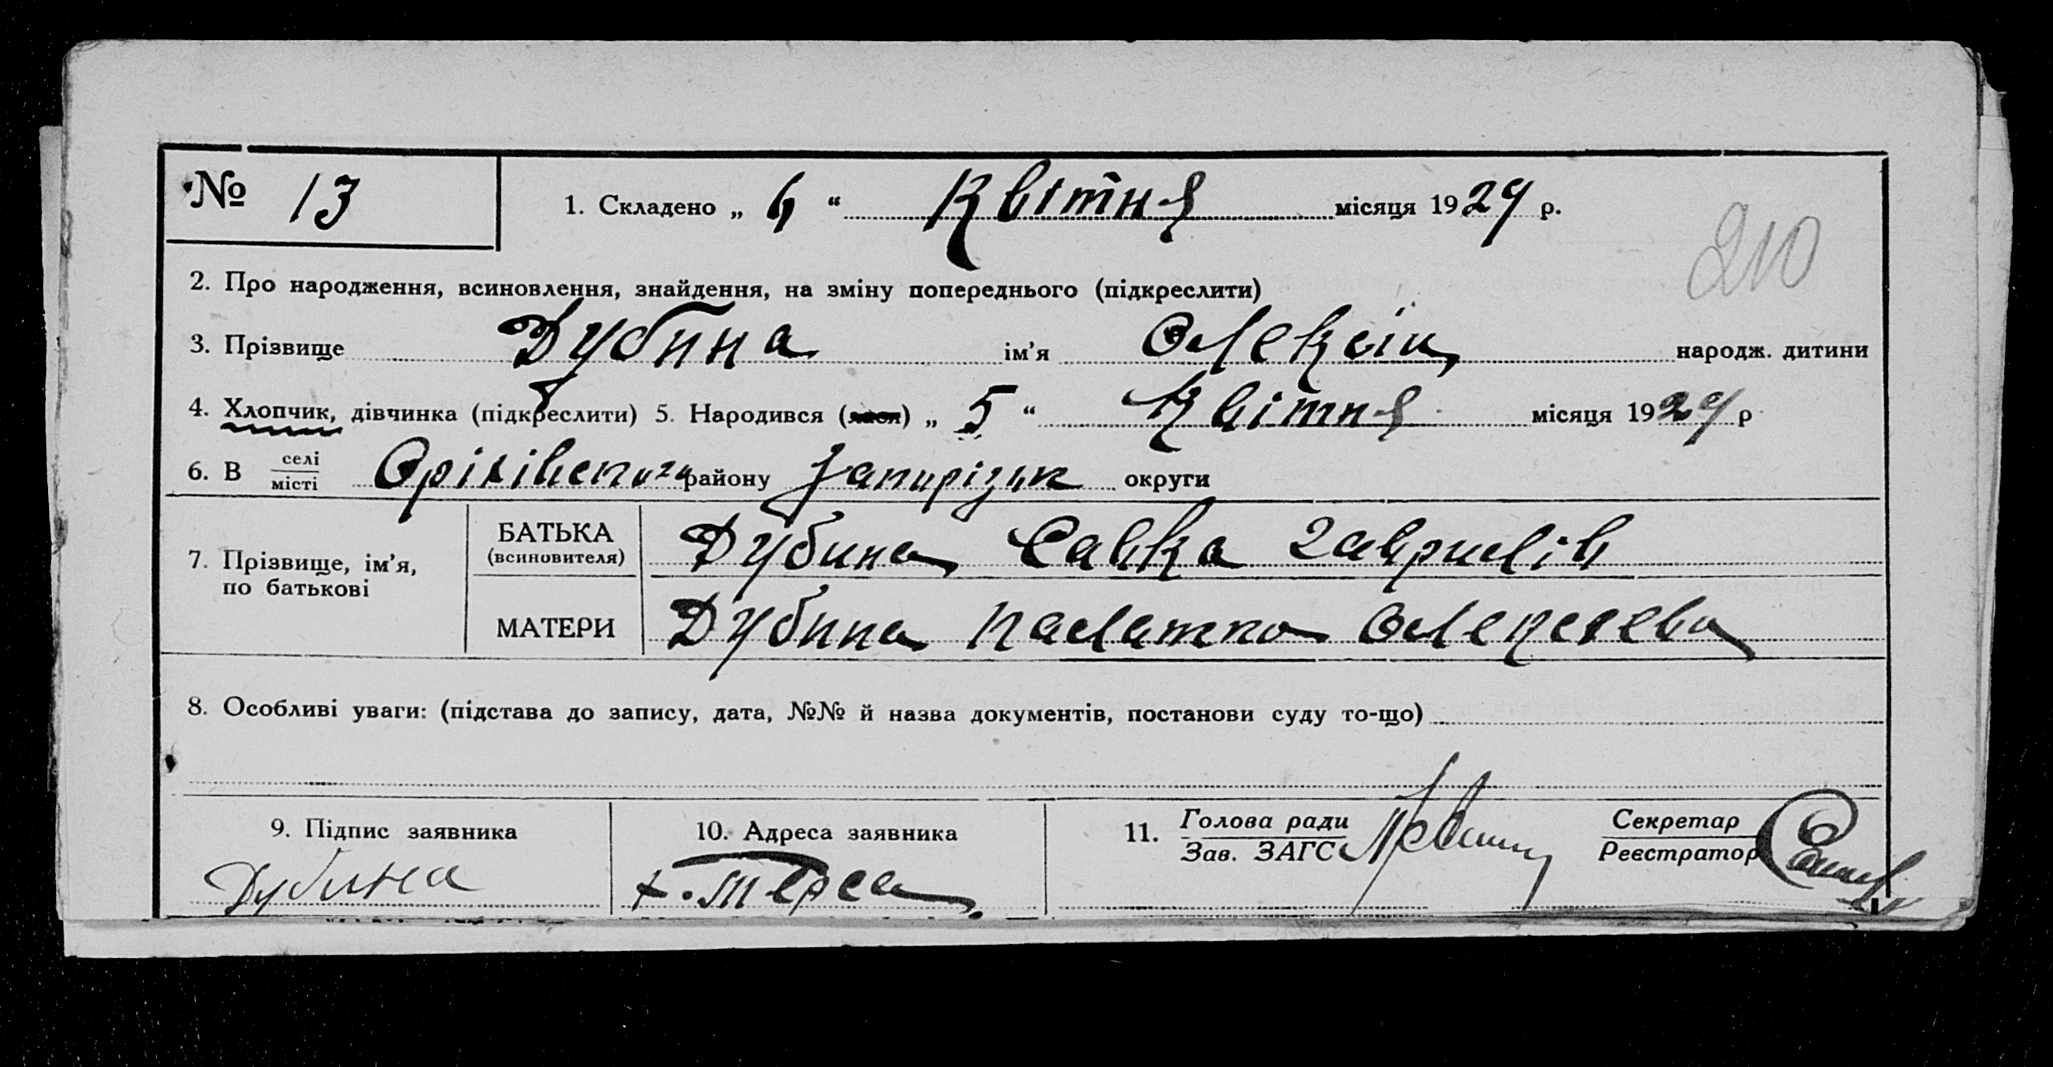 № 13
1. Складено „ 6 “ Квітня місяця 1929 р.
210
2. Про народження, всиновлення, знайдення, на зміну попереднього (підкреслити)
3. Прізвище Дубина ім'я Олексій народж. дитини
4. Хлопчик, дівчинка (підкреслити) 5. Народився (лася) „ 5 “ Квітня місяця 1929 р
6. В селі
місті Оріхівського району Запоріз. округи
7. Прізвище, ім'я, по батькові
БАТЬКА (всиновителя) Дубина Савка Гаврилів
МАТЕРИ Дубина
8. Особливі уваги: (підстава до запису, дата, №№ й назва документів, постанови суду то-що)
9. Підпис заявника
Дубина
10. Адреса заявника
х. Терса
11. Голова ради
Зав. ЗАГС
Секретар
Реєстратор